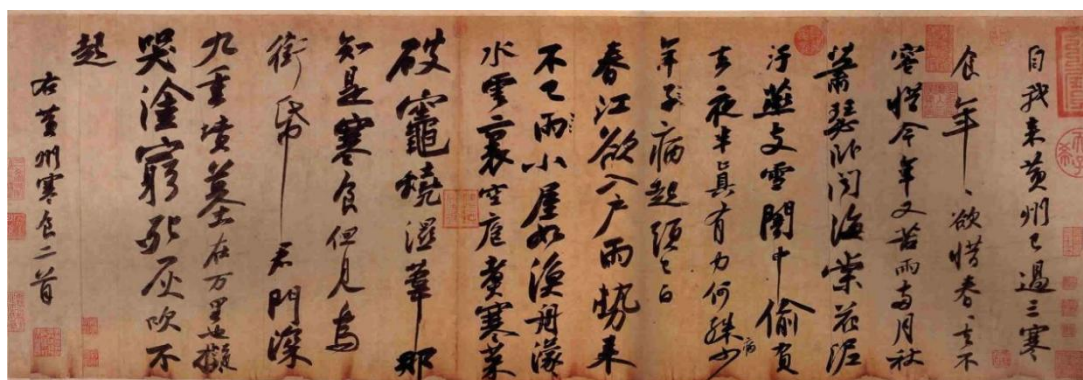 自我来黄州已過三寒
食年、欲惜春、去不
容惜今年又苦雨兩月秋
蕭瑟卧聞海棠花泥
汙燕支雪闇中偷負
去夜半真有力何殊少
病
年子病起頭已白
春江欲入户雨勢来
不已雨小屋如漁舟濛
水雲裏空庖煮寒菜
破竈燒濕葦那
知是寒食但見烏
銜帋君門深
九重墳墓在万里也擬
哭塗窮死灰吹不
起
右黄州寒食二首